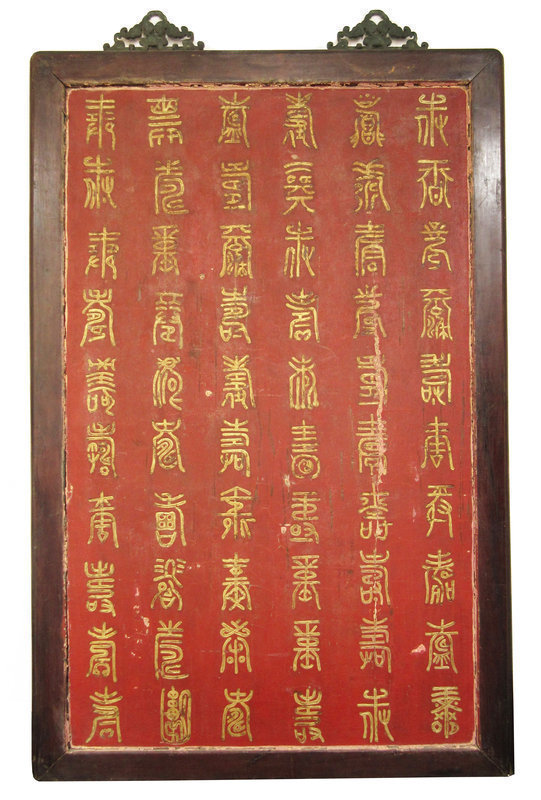 壽壽壽壽壽壽壽壽壽壽
壽壽壽壽壽壽壽壽壽壽
壽壽壽壽壽壽壽壽壽壽
壽壽壽壽壽壽壽壽壽壽
壽壽壽壽壽壽壽壽壽壽
壽壽壽壽壽壽壽壽壽壽